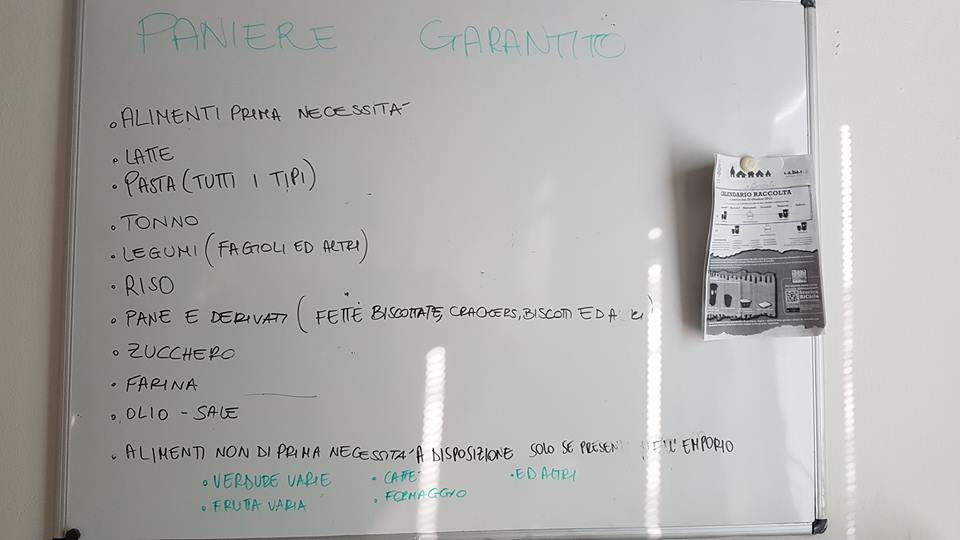 PANIERE GARANTITO
• ALIMENTI PRIMA NECESSITA'
• LATTE
• PASTA (TUTTI I TIPI)
• TONNO
• LEGUMI (FAGIOLI ED ALTRI)
• RISO
• PANE E DERIVATI (FETTE BISCOTTATE, CRACKERS, BISCOTTI ED
• ZUCCHERO
• FARINA
• OLIO - SALE
• ALIMENTI NON DI PRIMA NECESSITA' A DISPOSIZIONE SOLO SE EMPORIO
• VERDURE VARIE • CAFFE' • ED ALTRI
• FRUTTA VARIA • FORMAGGIO
CALENDARIO RACCOLTA